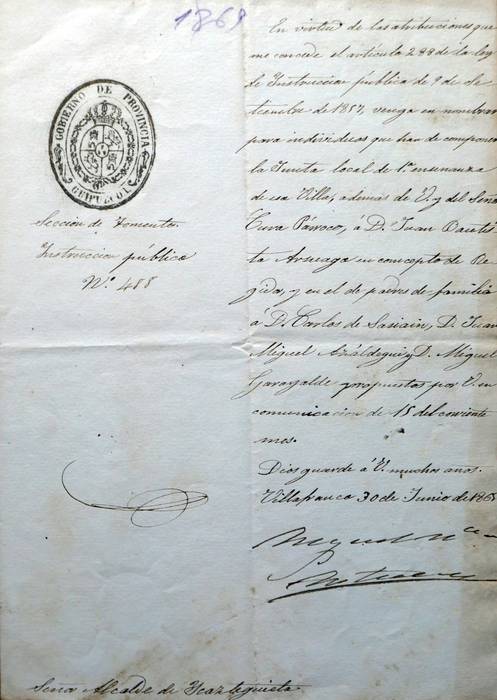 1869
GOBIERNO DE PROVINCIA
GUIPUZCOA
Seccion de Fomento.
Instruccion pública
Nº. 488
En virtud de las atribuciones que
me concede el artículo 288 de la ley
de Instruccion pública de 9 de Se-
tiembre de 1857, vengo en nombrar
para individuos que han de componer
la Junta local de 1ª enseñanza
de esa Villa, ademas de V. y del Señor
Cura Párroco, á D. Juan Bautis-
ta Arzuaga en concepto de Re-
gidor, y en el de padres de familia
á D. Carlos de Sasiain, D. Juan
Miguel Azáldegui y D. Miguel
Garagalde propuestos por V. en
comunicacion de 15 del corriente
mes.
Dios guarde á V. muchos años.
Villafranca 30 de Junio de 186
Miguel Mª
Señor Alcalde de Icazteguieta